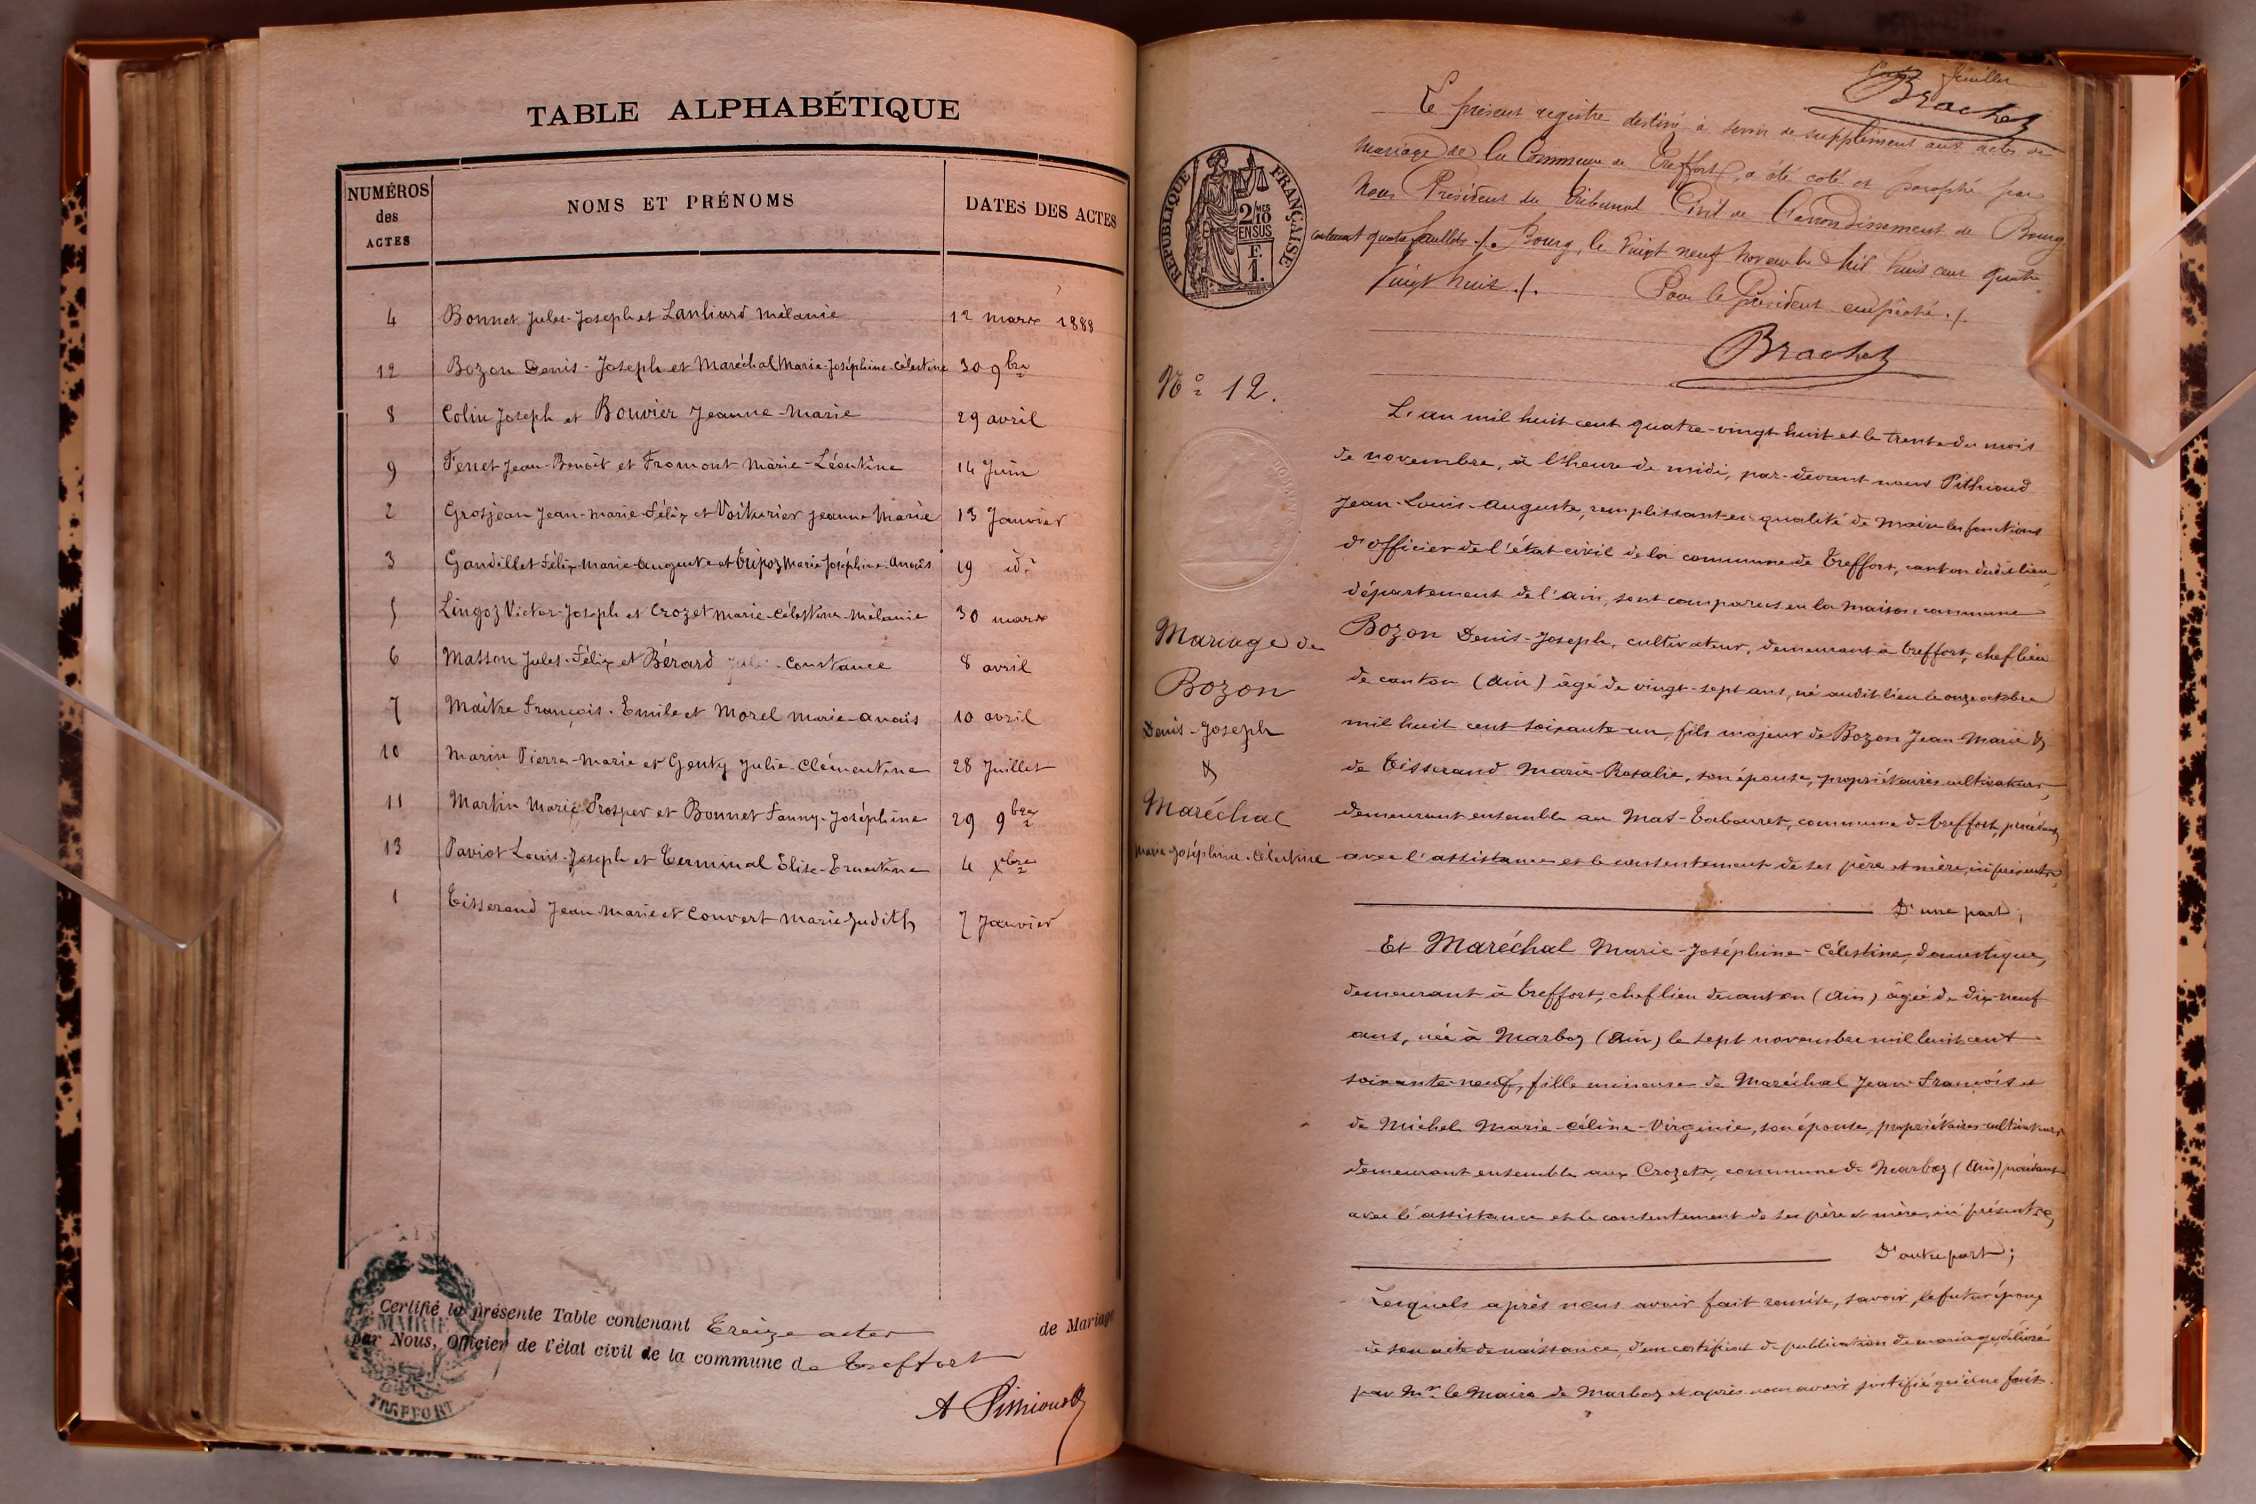 TABLE ALPHABÉTIQUE
NUMÉROS des ACTES NOMS ET PRÉNOMS DATES DES ACTES
4 Bonnet Jules-Joseph et Lanliard Mélanie 12 mars 1888
12 Bozon Denis-Joseph et Maréchal Marie-Joséphine-Célestine 30 9bre
8 Colin Joseph et Bouvier Jeanne-Marie 29 avril
9 Ferret Jean-Benoit et Fromont Marie-Léontine 14 Juin
2 Grosjean Jean-Marie-Félix et Voiturier Jeanne Marie 13 Janvier
3 Gandillet Félix-Marie-Auguste et Tripoz Marie Joséphine-Anaïs 19 id.
5 Lingoz Victor-Joseph et Crozet Marie-Célestine-Mélanie 30 mars
6 Masson Jules-Félix et Bérard Julie-Constance 8 avril
7 Maitre François-Emile et Morel Marie-Anaïs 10 avril
10 Marin Pierre-Marie et Genty Julie-Clémentine 28 Juillet
11 Martin Marie Prosper et Bonnet Fanny-Joséphine 29 9bre
13 Paviot Louis-Joseph et Terminal Elise-Ernestine 4 Xbre
1 Tisserand Jean Marie et Convert Marie-Judith 7 Janvier
Certifié la présente Table contenant Treize actes de Mariage
par Nous, Officier de l'état civil de la commune de Treffort
A Pithioud
MAIRIE
TREFFORT
feuillet
Brachet
Le présent registre destiné à servir de supplément aux actes de
Mariage de la Commune de Treffort, a été coté et paraphé par
Nous Président du Tribunal Civil de l'arrondissement de Bourg
contenant quatre feuillets ./. Bourg, le vingt neuf novembre mil huit cent quatre
vingt huit ./. Pour le Président empêché ./.
Brachet
RÉPUBLIQUE FRANÇAISE
2/MES 10
EN SUS
F.
1.
No 12.
Mariage de
Bozon
Denis-Joseph
&
Maréchal
Marie-Joséphine-Célestine
L'an mil huit cent quatre-vingt huit et le trente du mois
de novembre, à l'heure de midi, par-devant nous Pithioud
Jean-Louis-Auguste, remplissant en qualité de Maire les fonctions
d'officier de l'état civil de la commune de Treffort, canton dudit lieu
département de l'Ain, sont comparus en la maison commune
Bozon Denis-Joseph, cultivateur, demeurant à Treffort, chef lieu
de canton (Ain) âgé de vingt-sept ans, né audit lieu le onze octobre
mil huit cent soixante-un, fils majeur de Bozon Jean-Marie &
de Tisserand Marie-Rosalie, son épouse, propriétaires cultivateurs,
demeurant ensemble au Mas-Tabouret, commune de Treffort, procédant
avec l'assistance et le consentement de ses père et mère, ici présents,
D'une part;
Et Maréchal Marie-Joséphine-Célestine, domestique,
demeurant à Treffort, chef lieu de canton (Ain) âgée de dix-neuf
ans, née à Marboz (Ain) le sept novembre mil huit cent
soixante-neuf, fille mineure de Maréchal Jean-François et
de Michel Marie-Céline-Virginie, son épouse, propriétaires-cultivateurs
demeurant ensemble aux Crozets, commune de Marboz (Ain) procédant
avec l'assistance et le consentement de ses père et mère, ici présents,
D'autre part;
Lesquels après nous avoir fait remise, savoir, le futur époux
de son acte de naissance, d'un certificat de publication de mariage délivré
par Mr le Maire de Marboz et après nous avoir justifié qu'il ne fait